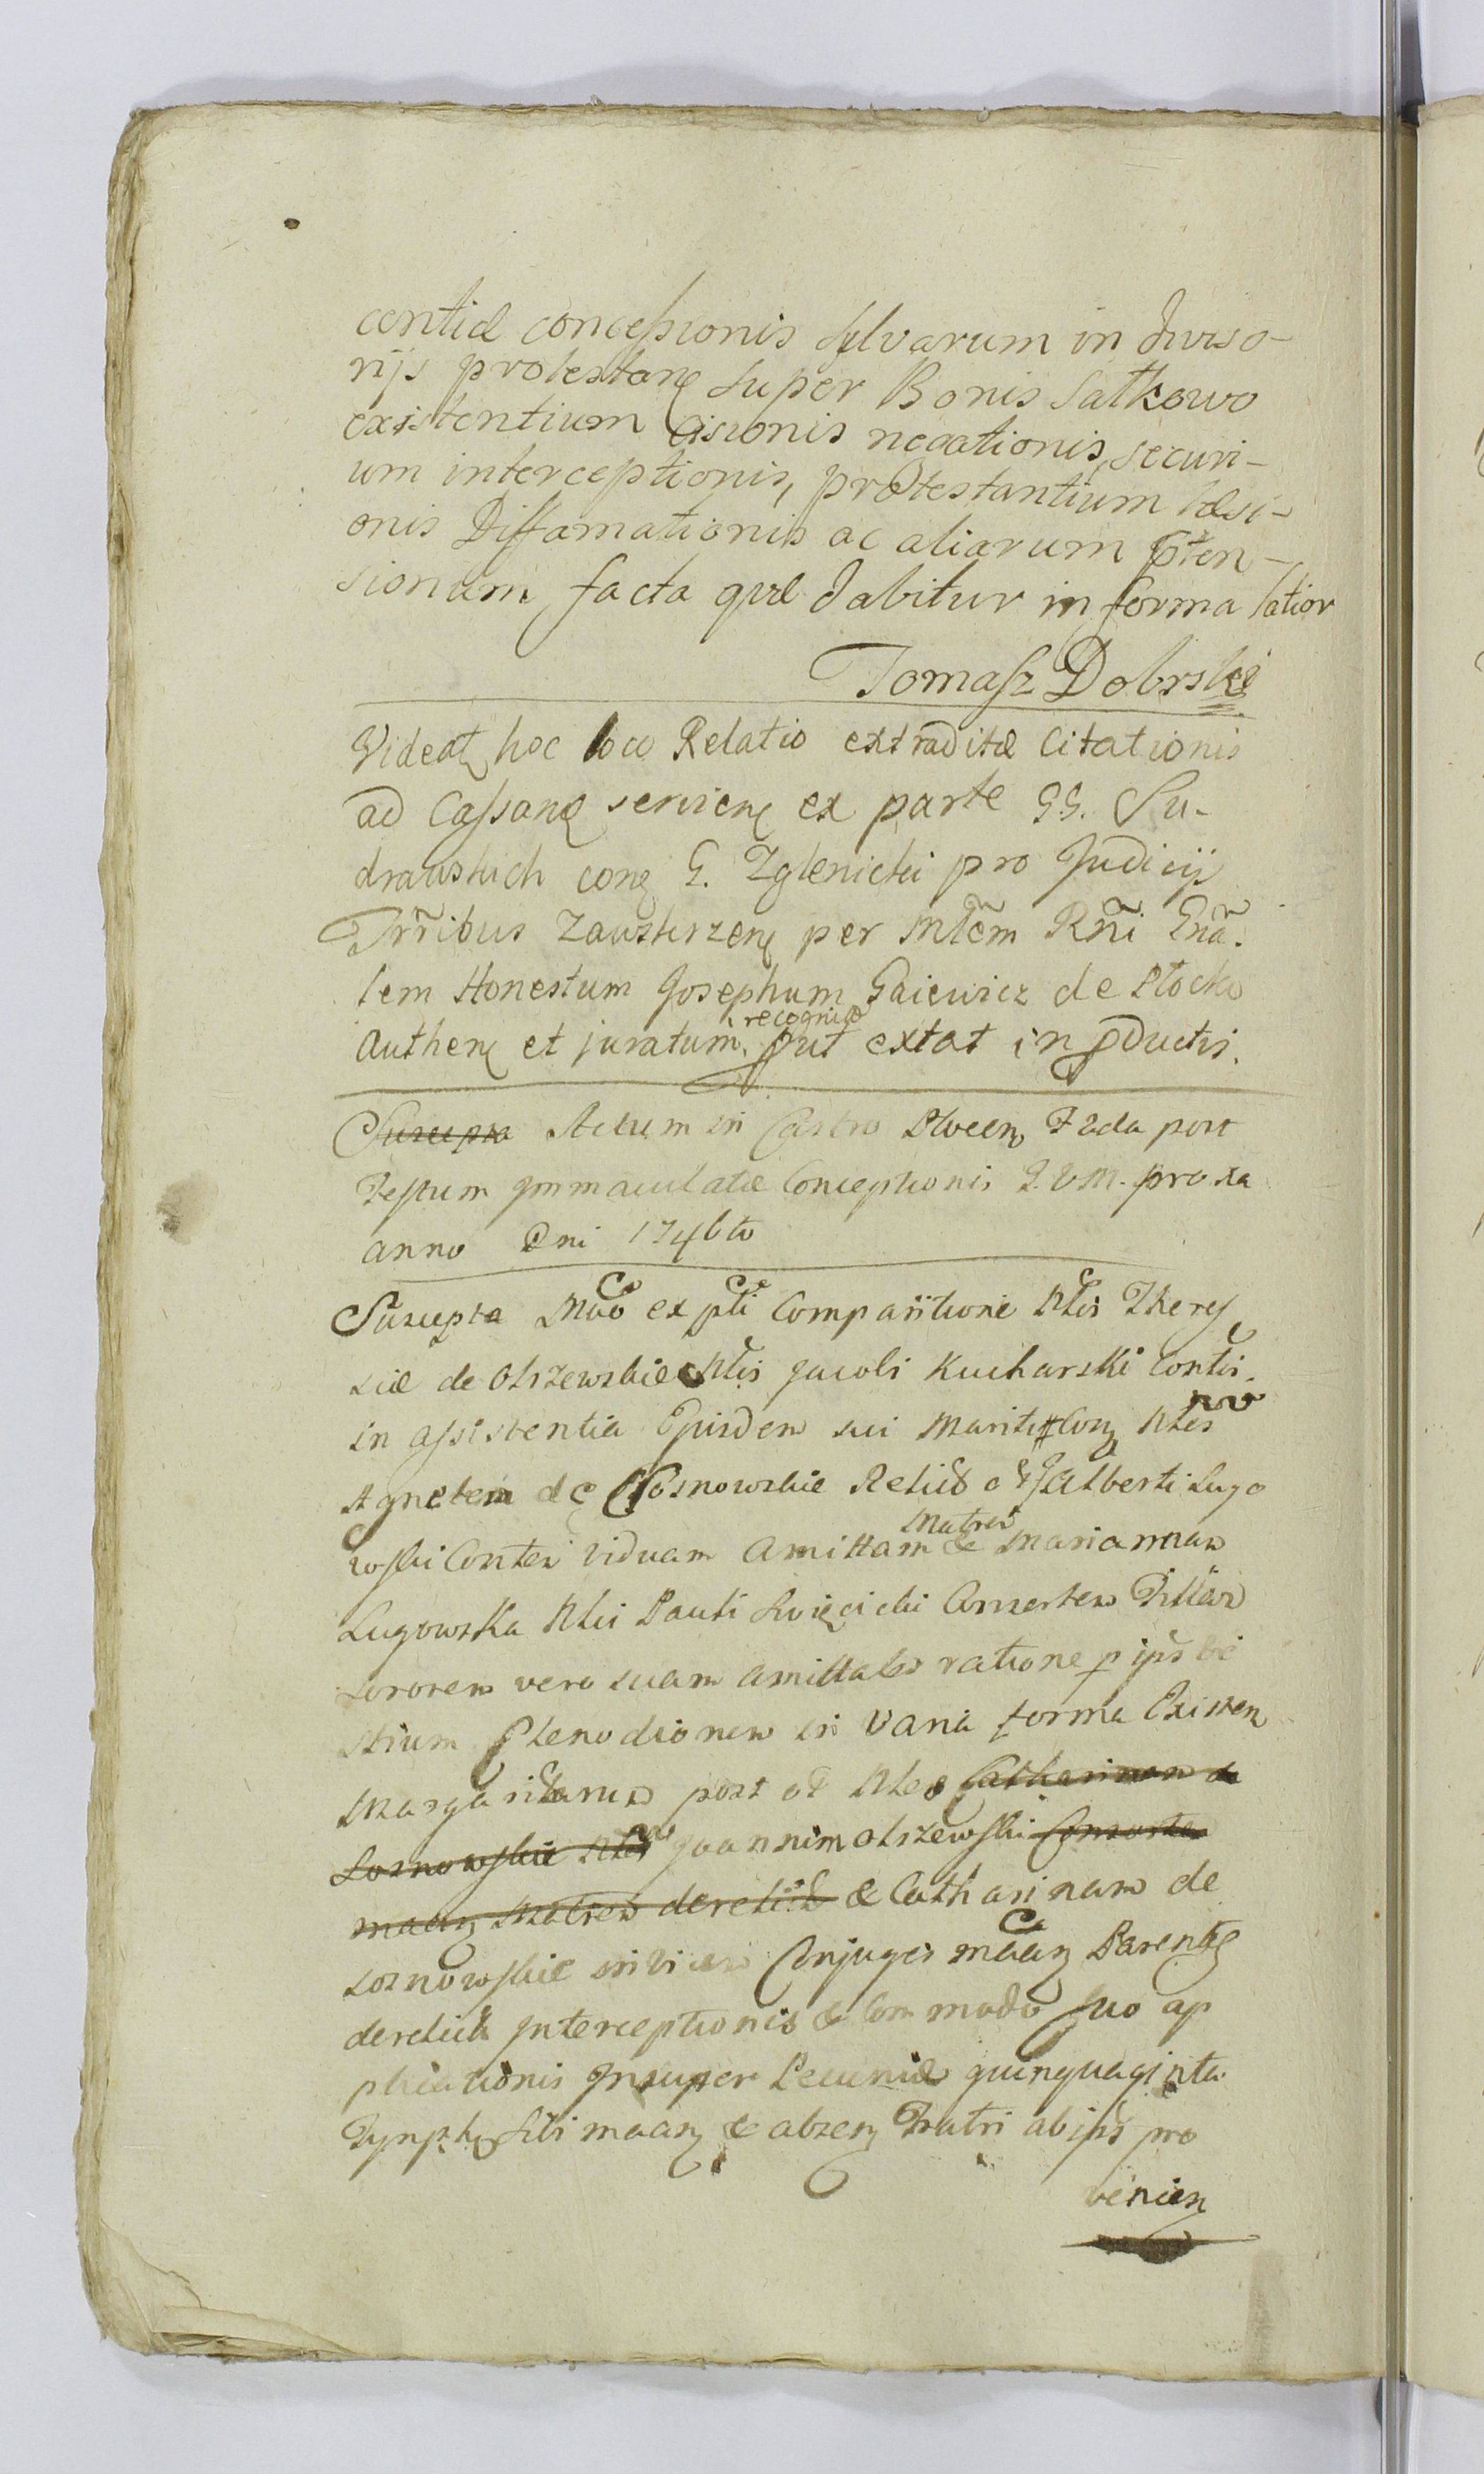 centiæ concessionis sylvarum in diviso-
rijs protestanę super Bonis Satkowo
existentium cisionis negationis, securi-
um interceptionis, protestantium læsi-
onis Diffamationis ac aliarum p̃ten-
sionum facta quæ dabitur in forma latior
Tomasz Dobrski
Videatę hoc loco Relatio extraditæ Citationis
ad Cassanę servienę ex parte GG. Su-
drawskich conę G. Zglenicki pro Judicijs
Trr̃ibus Zawskrzenę per Mlem Rñi Gña-
lem Honestum Josephum Gaiewicz de Płocko
authenę et juratum. recognitę put extat in pductis.
Suscepta Actum in Castro Plocenę Fada post
Festum Immaculatæ Conceptionis B.V.M. proxa
anno Dni 1746to
Suscepta Mãõ ex pti Comparitione Nlis There
siæ de Olszewskie Nlis Jacobi Kucharski Contis
in assistentia Ejusdem sui Mariti Conę Nles
Agnetem de Sosnowskie Relict ol Alberti Lugo
wski Conten viduam Amittam Matrem & Mariannam
Lugowska Nlis Pauli Święcicki Consortem Filiam
sororem vero suam amittalem ratione p ips be
stium Plenodionem in Varia forma Existenę
Margaritarum post ol Nles Catharinam de
Sosnowskie Nlis Joannem Olszewski Consorte
maanę Matrem derelict & Catharinam de
Sosnowskie invicem Conjuges maanę Parentes
derelict Interceptionis & Commodo suo ap
plicationis Insuper Pecuniæ quinquaginta
Tynphę sibi maanę & absenę Fratri ab ips pro
venienę